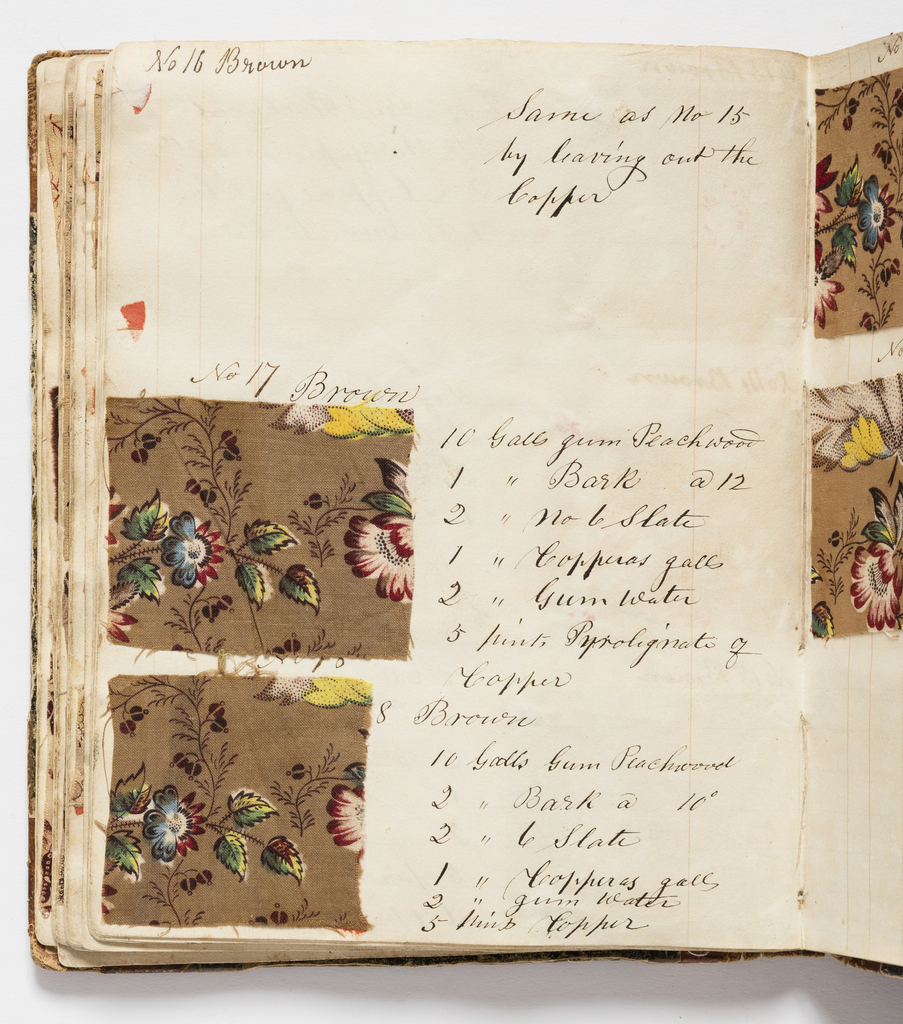 No 16 Brown
Same as No 15
by leaving out the
Copper
No 17 Brown
10 Galls gum Peachwood
1 " Bark a 12
2 " No 6 Slate
1 " Copperas galls
2 " Gum Water
5 pints Pyrolignate of
Copper
8 Brown
10 Galls Gum Peachwood
2 " Bark a 10°
2 " 6 Slate
1 " Copperas galls
2 " gum Water
5 pints Copper
No
No